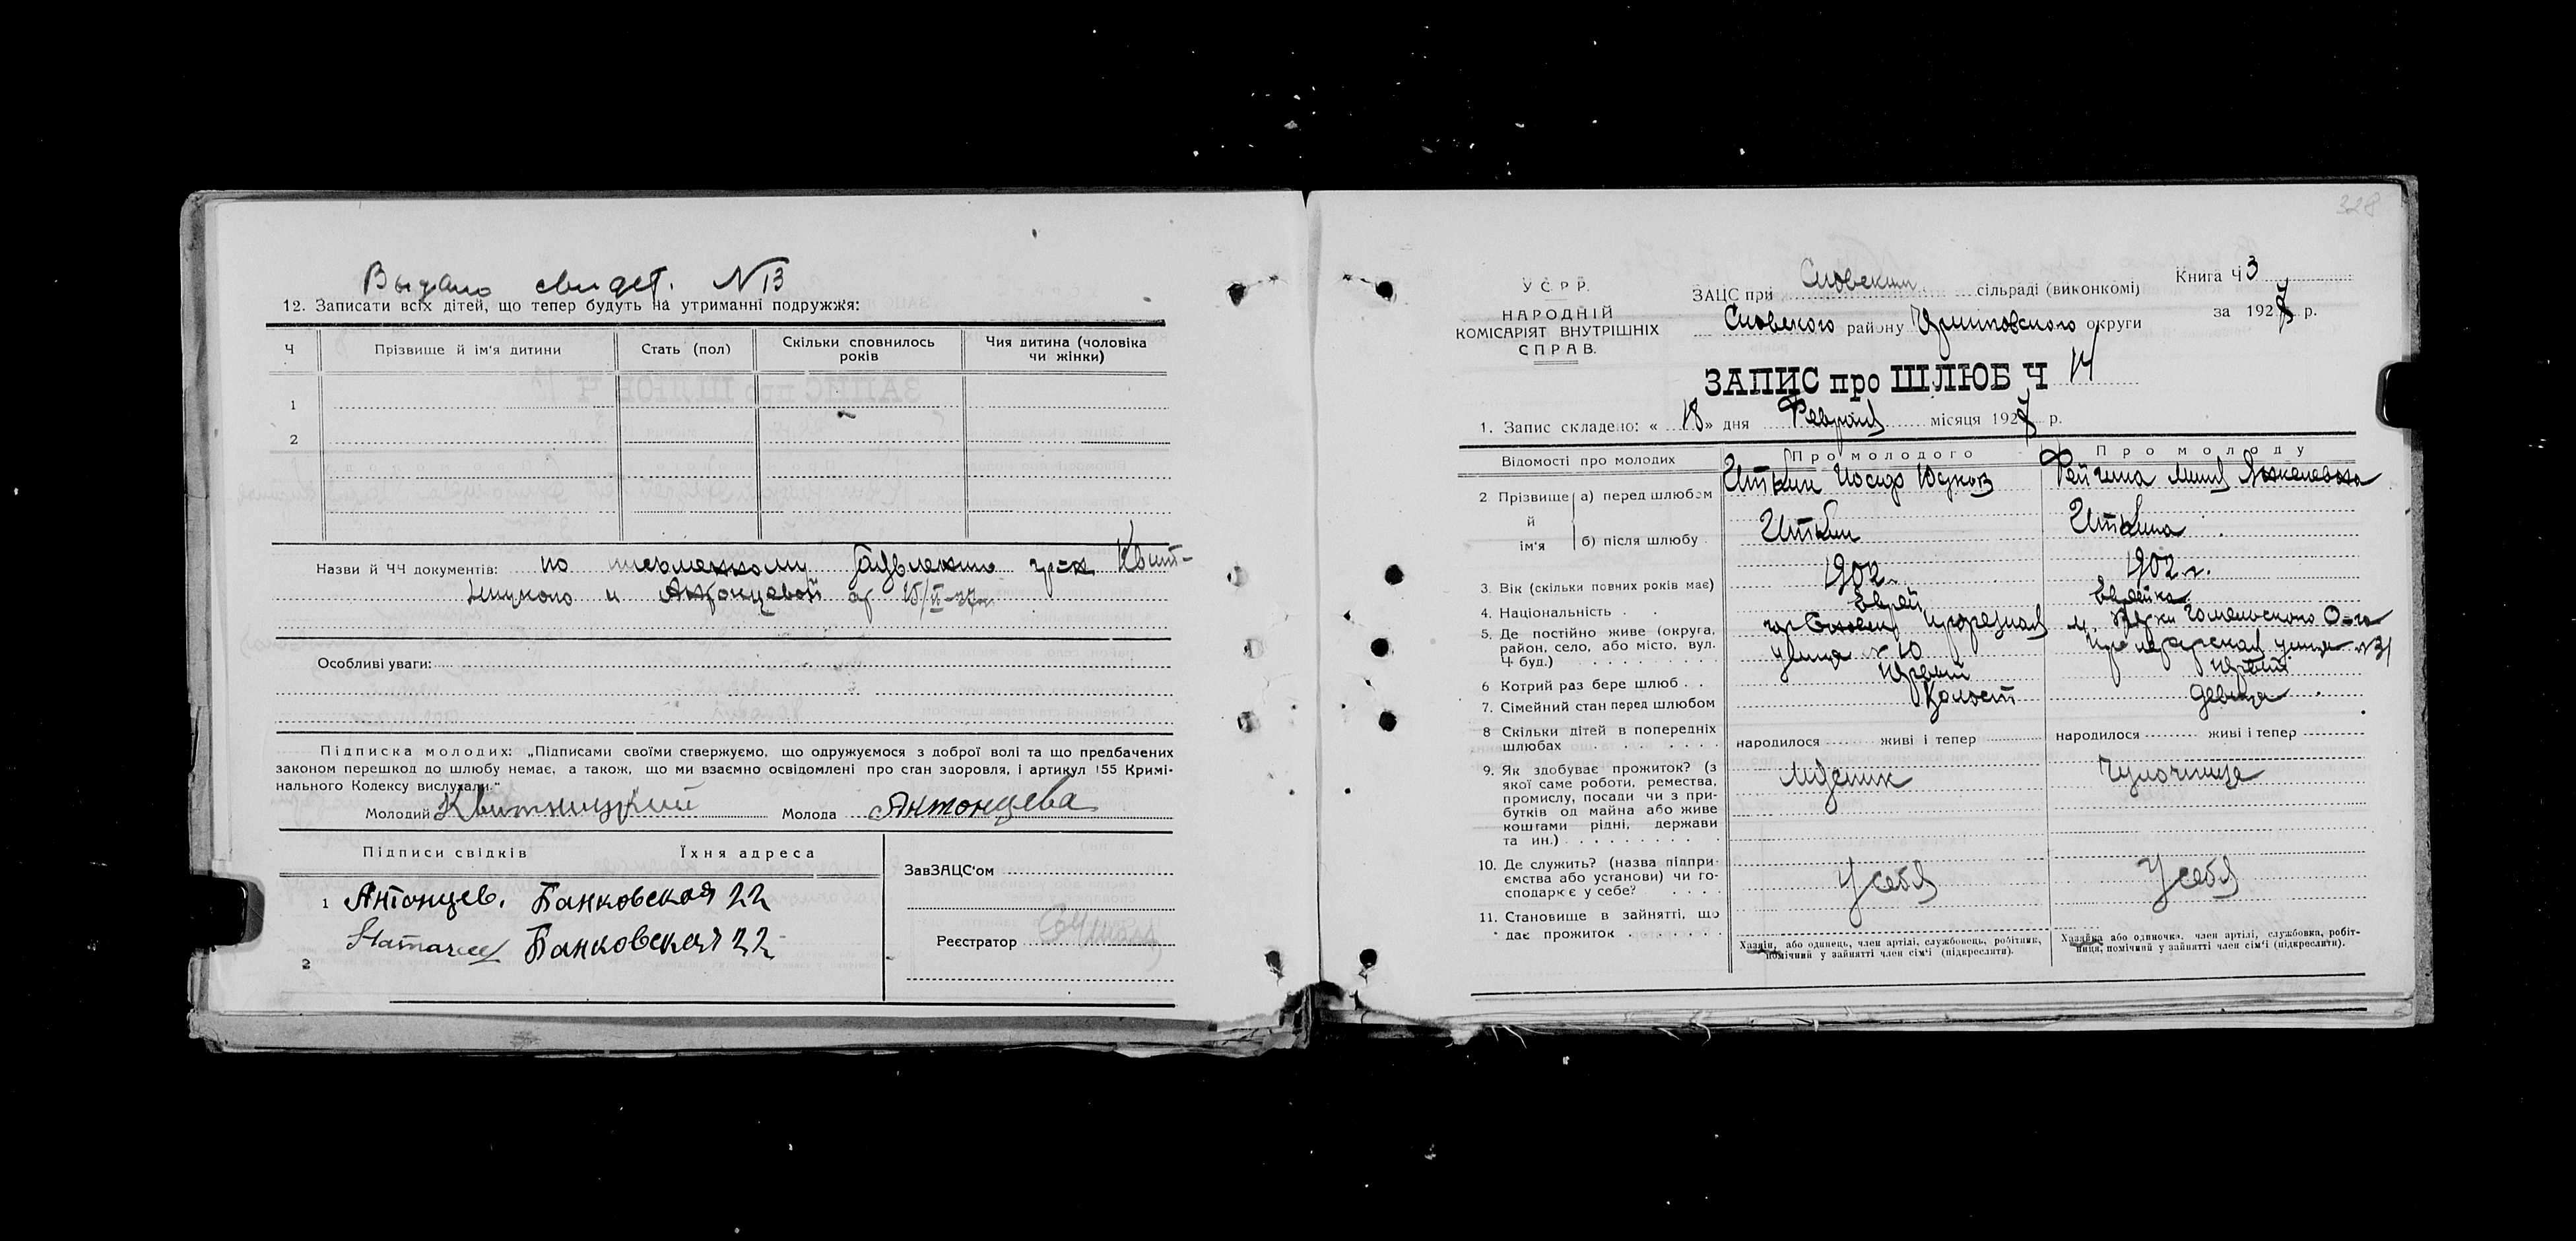 Выдано свидет. N 13
12. Записати всіх дітей, що тепер будуть на утриманні подружжя:
Ч
Прізвище й ім'я дитини
Стать (пол)
Скільки сповнилось років
Чия дитина (чоловіка чи жінки)
1
2
Назви й ЧЧ документів: по заявлению гр-н Квит-
ницкого и Антонцевой от 15/II-27г.
Особливі уваги:
Підписка молодих: „Підписами своїми ствержуємо, що одружуємося з доброї волі та що предбачених
законом перешкод до шлюбу немає, а також, що ми взаємно освідомлені про стан здоровля, і артикул 155 Кримі-
нального Кодексу вислухали."
Молодий Квитницкий Молода Антонцева
Підписи свідків Їхня адреса
ЗавЗАЦС'ом
1 Антонцев. Банковская 22
Банковская 22
2
Реєстратор
328
УСРР.
НАРОДНІЙ
КОМІСАРІЯТ ВНУТРІШНІХ
СПРАВ.
ЗАЦС при Сновском сільраді (виконкомі)
Сновского району округи
Книга Ч 3
за 1927 р.
ЗАПИС про ШЛЮБ Ч 14
1. Запис складено: « 18 » дня Февраля місяця 1927 р.
Відомості про молодих
Про молодого
Про молоду
2 Прізвище й ім'я
а) перед шлюбом
Иткин Иосиф Юдков
Фейгина
б) після шлюбу
Иткин
Иткина
3. Вік (скільки повних років має)
1902 г.
1902 г.
4. Національність
Еврей
Еврейка
5. Де постійно живе (округа,
район, село, або місто, вул.
Ч буд.)
гор Сновск
улица № 10
Гомельского
Пролетарская улица №31
6 Котрий раз бере шлюб
Первый
Первый
7. Сімейний стан перед шлюбом
Холост
девица
8 Скільки дітей в попередніх
шлюбах
народилося живі і тепер
народилося живі і тепер
9. Як здобуває прожиток? (з
якої саме роботи, ремества,
промислу, посади чи з при-
бутків од майна або живе
коштами рідні, держави
та ин.)
Чулочница
10. Де служить? (назва підпри-
ємства або установи) чи го-
сподарює у себе?
У себя
У себя
11. Становище в зайнятті, що
дає прожиток
Хазяїн, або одинець, член артілі, службовець, робітник,
помічний у зайнятті член сім'ї (підкреслити).
Хазяйка або одиночка, член артілі, службовка, робіт-
ниця, помічний у зайнятті член сім'ї (підкреслити).